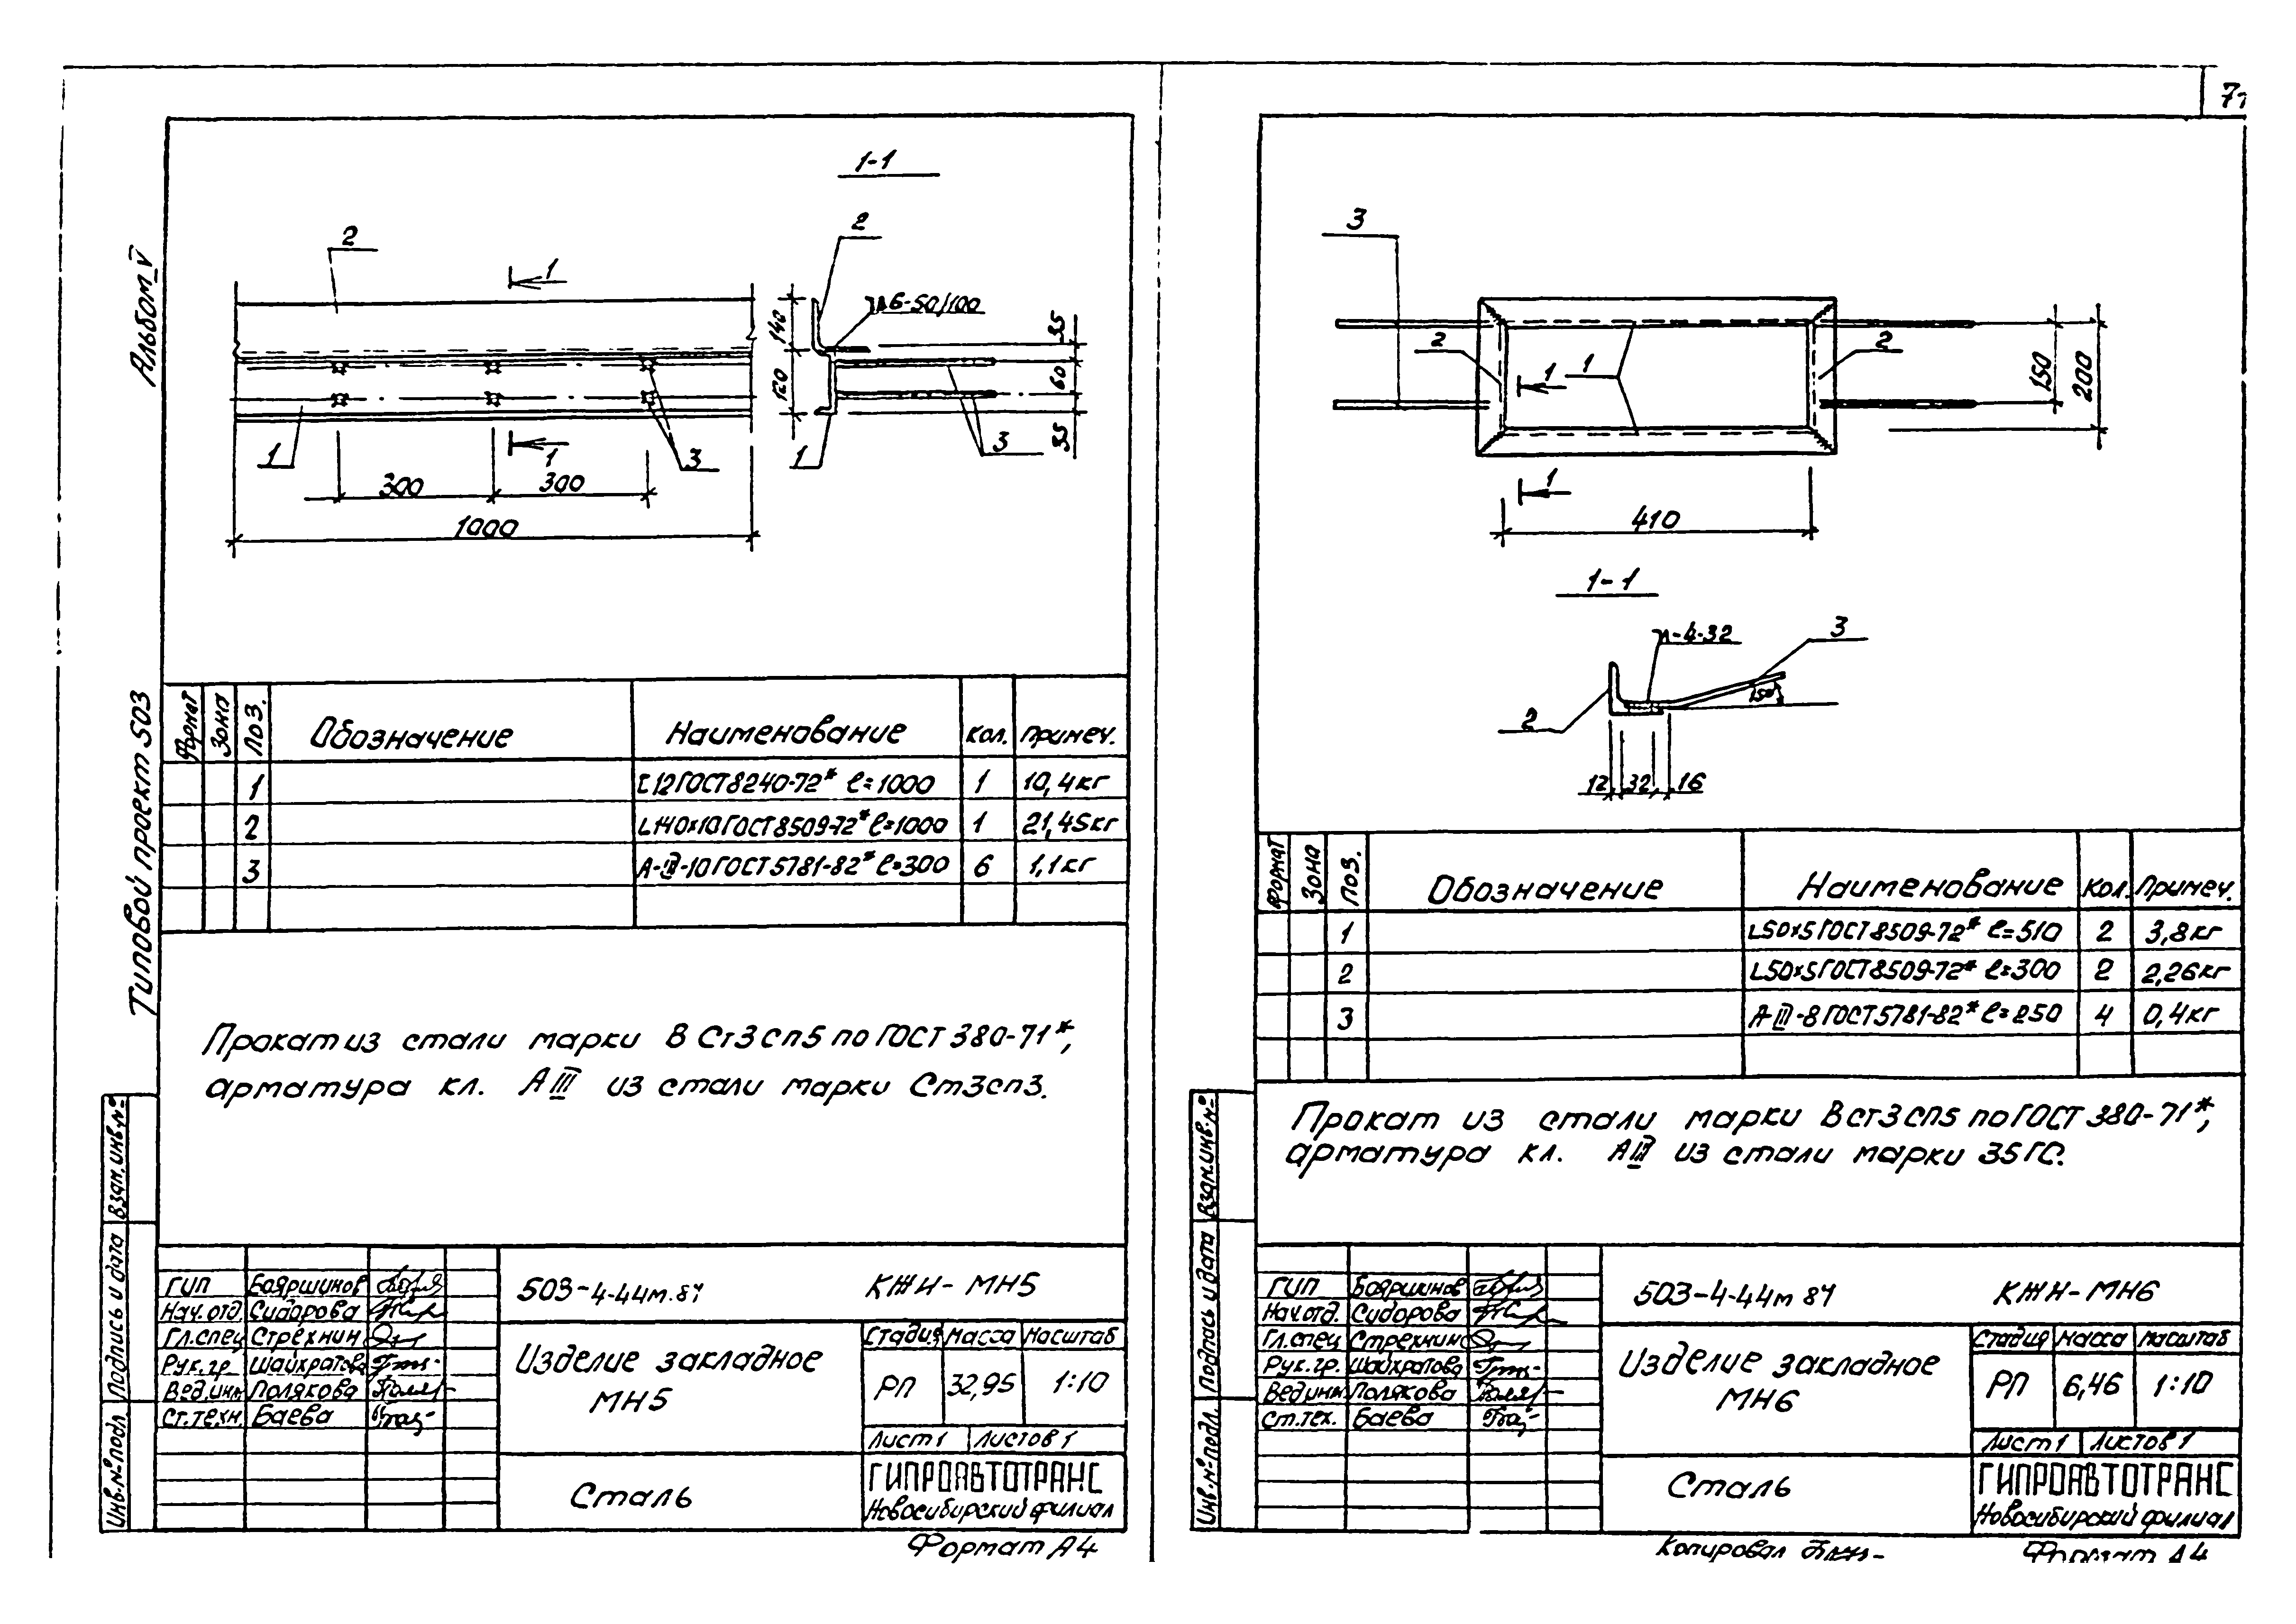 Альбом V
Типовой проект 503
1-1
2
1
2
6-50/100
140
120
35
60
35
1
1
3
1
3
300
300
1000
Формат Зона Поз. Обозначение Наименование Кол. Примеч.
1 [12 ГОСТ 8240-72* ℓ=1000 1 10,4кг
2 L140×10 ГОСТ 8509-72* ℓ=1000 1 21,45кг
3 А-III-10 ГОСТ 5781-82* ℓ=300 6 1,1кг
Прокат из стали марки ВСт3сп5 по ГОСТ 380-71*,
арматура кл. АIII из стали марки Ст3сп3.
Взам.инв.№
Подпись и дата
Инв.№подл.
ГИП Бояршинов
Нач.отд. Сидорова
Гл.спец Стрехнин
Рук.гр. Шайхратова
Вед.инж Полякова
Ст.техн. Баева
503-4-44м.87 КЖИ-МН5
Изделие закладное
МН5
Стадия Масса Масштаб
РП 32,95 1:10
Лист 1 Листов 1
Сталь
ГИПРОАВТОТРАНС
Новосибирский филиал
Формат А4
3
2
1
1
2
150
200
1
410
1-1
4-32
3
15°
2
12 32 16
Формат Зона Поз. Обозначение Наименование Кол. Примеч.
1 L50×5 ГОСТ 8509-72* ℓ=510 2 3,8кг
2 L50×5 ГОСТ 8509-72* ℓ=300 2 2,26кг
3 А-III-8 ГОСТ 5781-82* ℓ=250 4 0,4кг
Прокат из стали марки Вст3сп5 по ГОСТ 380-71*,
арматура кл. АIII из стали марки 35ГС.
Взам.инв.№
Подпись и дата
Инв.№подл.
ГИП Бояршинов
Нач.отд. Сидорова
Гл.спец Стрехнин
Рук.гр. Шайхратова
Вед.инж Полякова
Ст.тех. Баева
503-4-44м 87 КЖИ-МН6
Изделие закладное
МН6
Стадия Масса Масштаб
РП 6,46 1:10
Лист 1 Листов 1
Сталь
ГИПРОАВТОТРАНС
Новосибирский филиал
Копировал
Формат А4